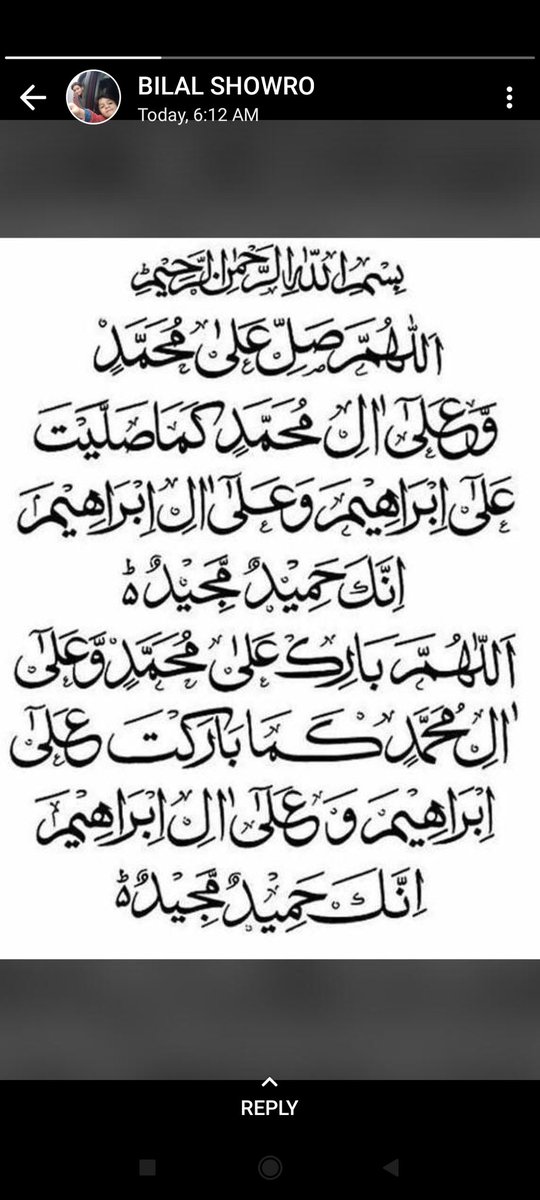 BILAL SHOWRO
Today, 6:12 AM
بِسْمِ اللهِ الرَّحْمٰنِ الرَّحِيْمِ
اَللّٰهُمَّ صَلِّ عَلٰى مُحَمَّدٍ
وَّعَلٰٓى اٰلِ مُحَمَّدٍ كَمَا صَلَّيْتَ
عَلٰٓى اِبْرَاهِيْمَ وَعَلٰٓى اٰلِ اِبْرَاهِيْمَ
اِنَّكَ حَمِيْدٌ مَّجِيْدٌ ؕ
اَللّٰهُمَّ بَارِكْ عَلٰى مُحَمَّدٍ وَّعَلٰٓى
اٰلِ مُحَمَّدٍ كَمَا بَارَكْتَ عَلٰٓى
اِبْرَاهِيْمَ وَعَلٰٓى اٰلِ اِبْرَاهِيْمَ
اِنَّكَ حَمِيْدٌ مَّجِيْدٌ ؕ
REPLY